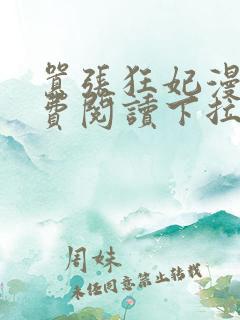 囂张狂妃漫
费閱讀下拉
周妹
未经同意禁止转载